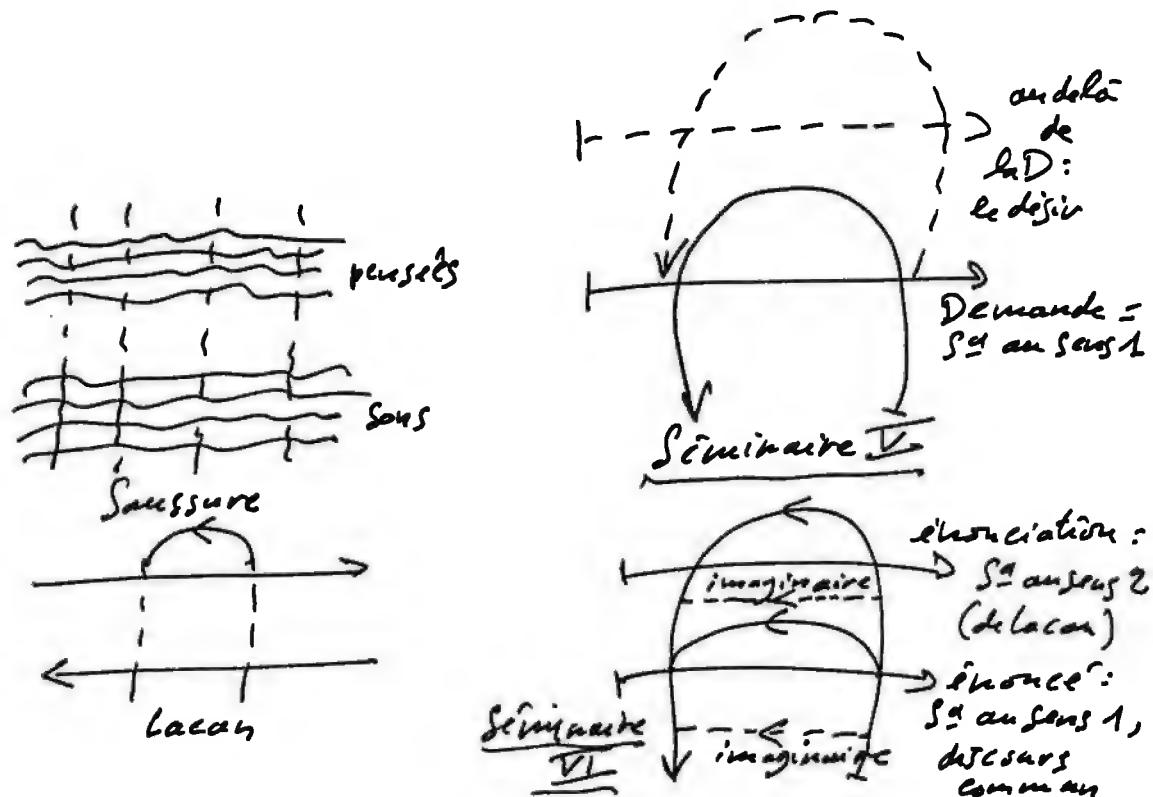 pensées
sons
Saussure
Lacan
au delà
de
la D :
le désir
Demande =
Sa au sens 1
Séminaire V
énonciation :
Sa au sens 2
(de Lacan)
imaginaire
énoncé :
Sa au sens 1,
discours
commun
imaginaire
Séminaire
VI